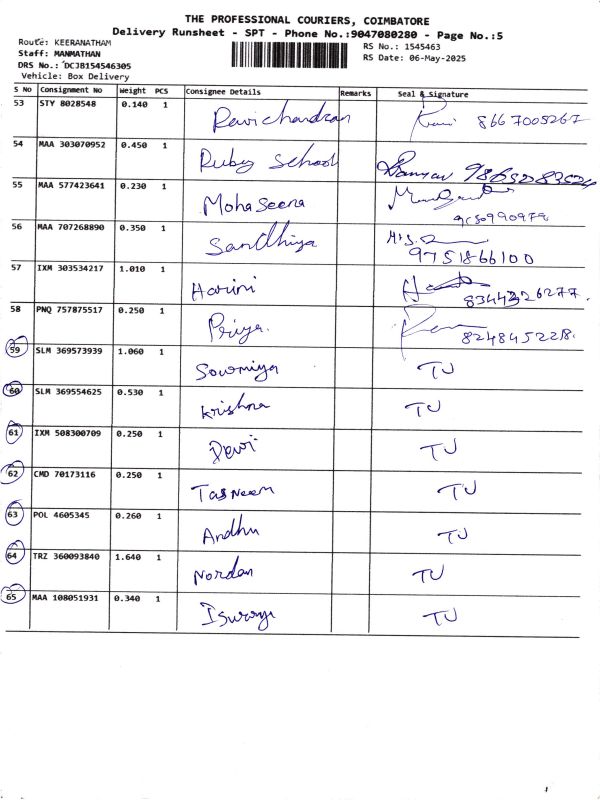 THE PROFESSIONAL COURIERS, COIMBATORE
Delivery Runsheet - SPT - Phone No.:9047080280 - Page No.:5
Route: KEERANATHAM
RS No.: 1545463
Staff: MANMATHAN
RS Date: 06-May-2025
DRS No.: DCJB154546305
Vehicle: Box Delivery
S No Consignment No Weight PCS Consignee Details Remarks Seal & Signature
53 STY 8028548 0.140 1 Ravichandran Ravi 8667005267
54 MAA 303070952 0.450 1 Ruby School
55 MAA 577423641 0.230 1 Mohaseena
56 MAA 707268890 0.350 1 Sandhiya 9751866100
57 IXM 303534217 1.010 1 Harini
58 PNQ 757875517 0.250 1 Priya. 8248452218.
59 SLM 369573939 1.060 1 Sowmiya TU
60 SLM 369554625 0.530 1 Krishna TU
61 IXM 508300709 0.250 1 Devi TU
62 CMD 70173116 0.250 1 Tasneem TU
63 POL 4605345 0.260 1 Andhu TU
64 TRZ 360093840 1.640 1 Nordan TU
65 MAA 108051931 0.340 1 Iswarya TU